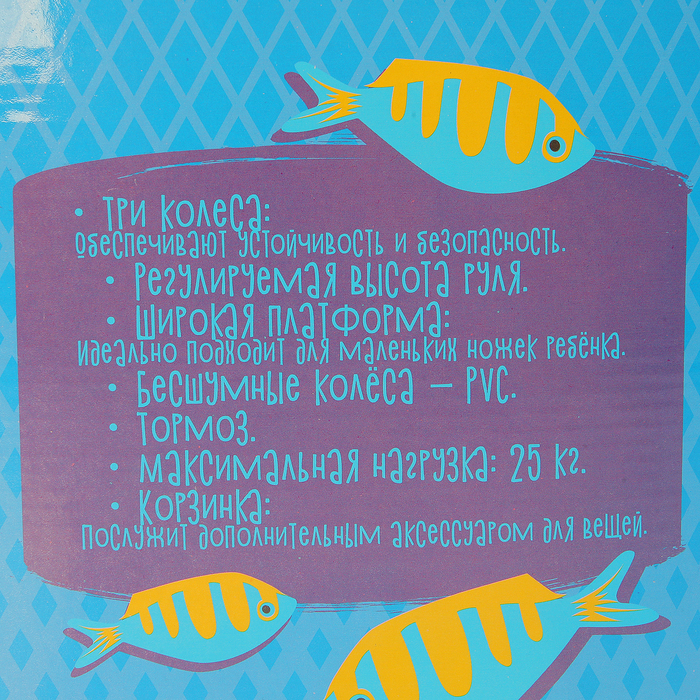 • Три колеса:
обеспечивают устойчивость и безопасность.
• Регулируемая высота руля.
• Широкая платформа:
идеально подходит для маленьких ножек ребёнка.
• Бесшумные колёса – PVC.
• Тормоз.
• Максимальная нагрузка: 25 кг.
• Корзинка:
послужит дополнительным аксессуаром для вещей.